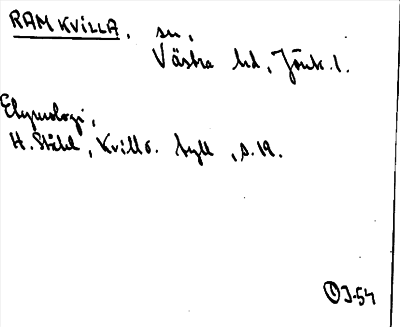 RAMKVILLA, sn,
Västra hd, Jönk. l.
Etymologi,
H. Ståhl, Kvill o. tyll, s. 19.
OJ-54